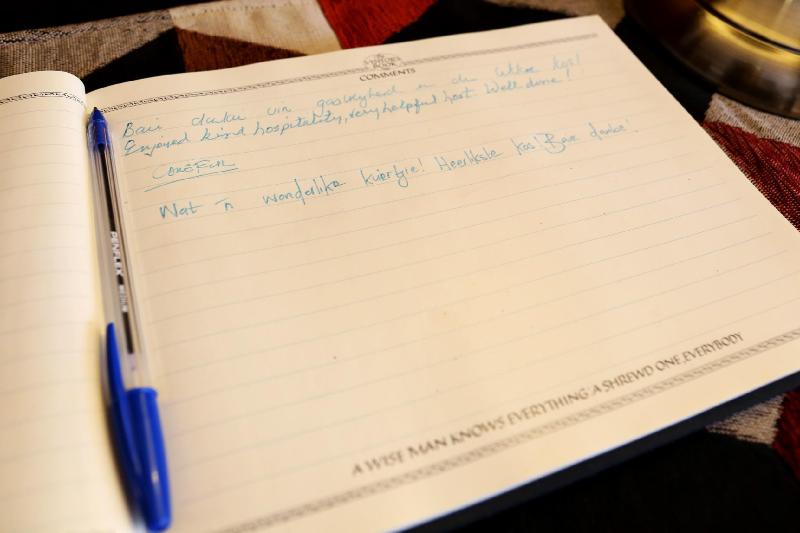 THE VISITORS BOOK
COMMENTS
Baie danku vir gasvryheid en die lekker kos!
Enjoyed kind hospitality, very helpful host. Well done!
Wat 'n wonderlike kuiertjie! Heerlikste kos! Baie dankie!
PENFLEX MEDIUM
A WISE MAN KNOWS EVERYTHING: A SHREWD ONE, EVERYBODY